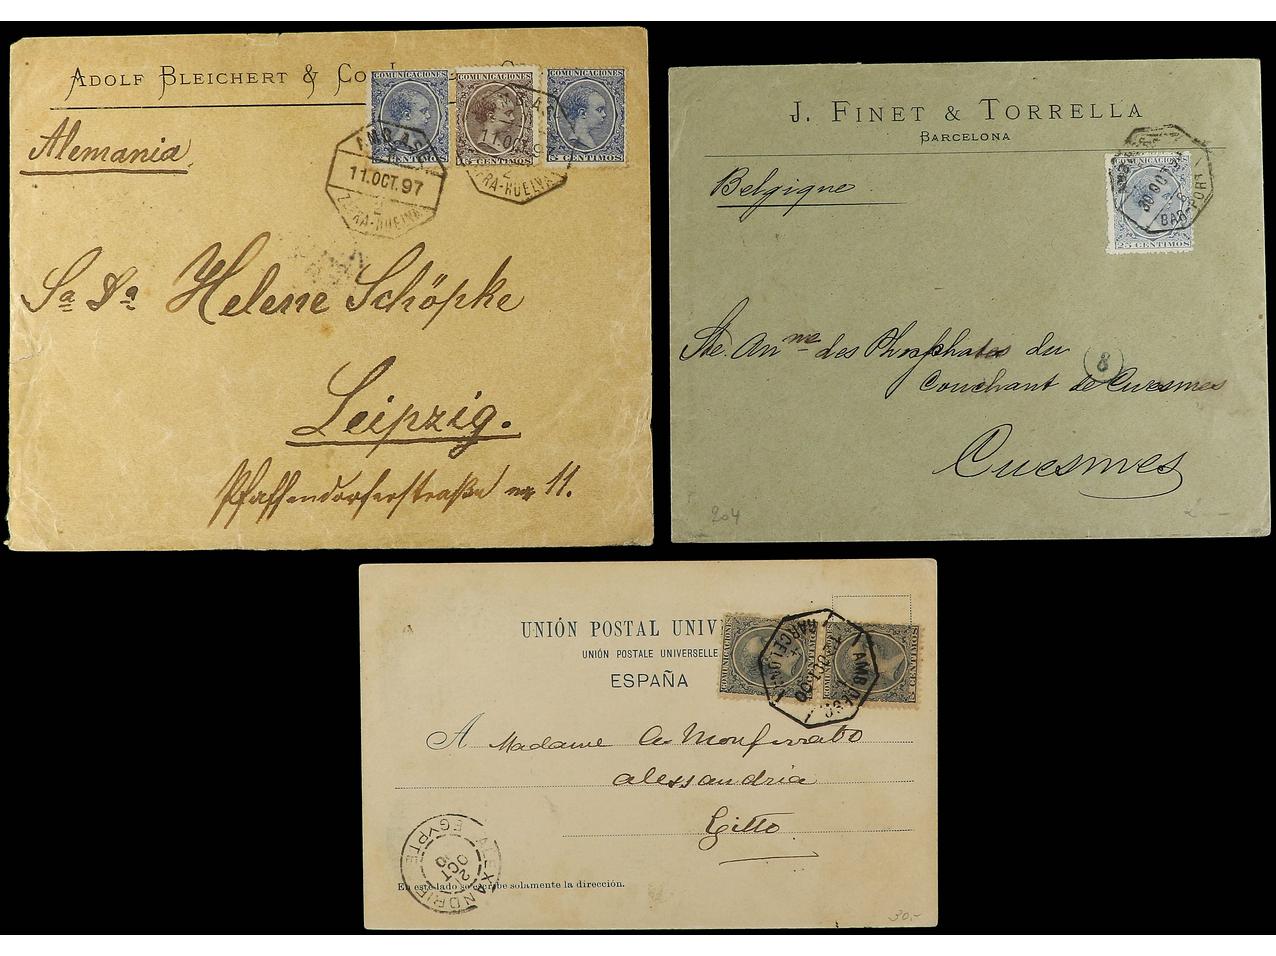 ADOLF BLEICHERT & CO
COMUNICACIONES
COMUNICACIONES
COMUNICACIONES
5 CENTIMOS
15 CENTIMOS
5 CENTIMOS
AMB. AS.
11.OCT.97
2
ZAFRA-HUELVA
11.OCT.97
2
ZAFRA-HUELVA
Alemania
Sa Da Helene Schöpke
Leipzig.
Pfaffendorferstraße nr 11.
J. FINET & TORRELLA
BARCELONA
COMUNICACIONES
25 CENTIMOS
30 OCT
BAR-PORT
Belgique
Ste. Anme des Phosphates du
8
Couchant de Cuesmes
Cuesmes
204
UNIÓN POSTAL UNIV
UNION POSTALE UNIVERSELLE
ESPAÑA
COMUNICACIONES
COMUNICACIONES
5 CENTIMOS
AMB. DESC.
OCT.00
BARCELONA
A Madame
Alessandria
Egitto
ALEXANDRIE
EGYPTE
OCT
En este lado se escribe solamente la dirección.
30.-